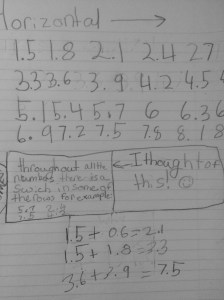 Horizontal
1.5 1.8 2.1 2.4 27
3.3 3.6 3.9 4.2 4.5
5.1 5.4 5.7 6 6.3 6
6.9 7.2 7.5 7.8 8.1 8
throughout all the
numbers there is a
swich in some of
the rows for example
5.7 2.3
I thought on
this!
1.5 + 06 = 2.1
1.5 + 1.8 = 2.3
3.6 + 3.9 = 7.5